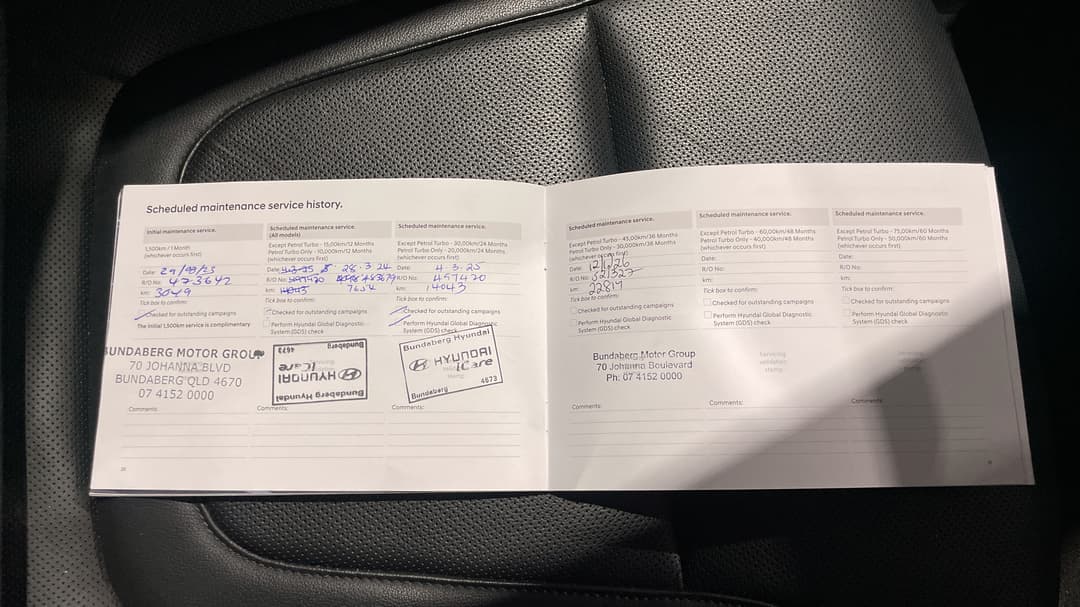 Scheduled maintenance service history.
Initial maintenance service.
1,500km / 1 Month
(whichever occurs first)
Date: 29/03/23
R/O No: 473642
km: 3049
Tick box to confirm:
Checked for outstanding campaigns
The initial 1,500km service is complimentary
BUNDABERG MOTOR GROUP
70 JOHANNA BLVD
BUNDABERG QLD 4670
07 4152 0000
Comments:
Scheduled maintenance service.
(All models)
Except Petrol Turbo - 15,000km/12 Months
Petrol Turbo Only - 10,000km/12 Months
(whichever occurs first)
Date: 28·3·24
R/O No:
km: 14043 7654
Tick box to confirm:
Checked for outstanding campaigns
Perform Hyundai Global Diagnostic
System (GDS) check
Bundaberg Hyundai
HYUNDAI
iCare
Bundaberg 4673
Comments:
Scheduled maintenance service.
Except Petrol Turbo - 30,000km/24 Months
Petrol Turbo Only - 20,000km/24 Months
(whichever occurs first)
Date: 4·3·25
R/O No: 497420
km: 14043
Tick box to confirm:
Checked for outstanding campaigns
Perform Hyundai Global Diagnostic
System (GDS) check
Bundaberg Hyundai
HYUNDAI
iCare
Bundaberg 4673
Comments:
Scheduled maintenance service.
Except Petrol Turbo - 45,000km/36 Months
Petrol Turbo Only - 30,000km/36 Months
(whichever occurs first)
Date: 12/1/26
R/O No: 521527
km: 22817
Tick box to confirm:
Checked for outstanding campaigns
Perform Hyundai Global Diagnostic
System (GDS) check
Bundaberg Motor Group
70 Johanna Boulevard
Ph: 07 4152 0000
Comments:
Scheduled maintenance service.
Except Petrol Turbo - 60,000km/48 Months
Petrol Turbo Only - 40,000km/48 Months
(whichever occurs first)
Date:
R/O No:
km:
Tick box to confirm:
Checked for outstanding campaigns
Perform Hyundai Global Diagnostic
System (GDS) check
Servicing
validation
stamp
Comments:
Scheduled maintenance service.
Except Petrol Turbo - 75,000km/60 Months
Petrol Turbo Only - 50,000km/60 Months
(whichever occurs first)
Date:
R/O No:
km:
Tick box to confirm:
Checked for outstanding campaigns
Perform Hyundai Global Diagnostic
System (GDS) check
Servicing
validation
stamp
Comments: